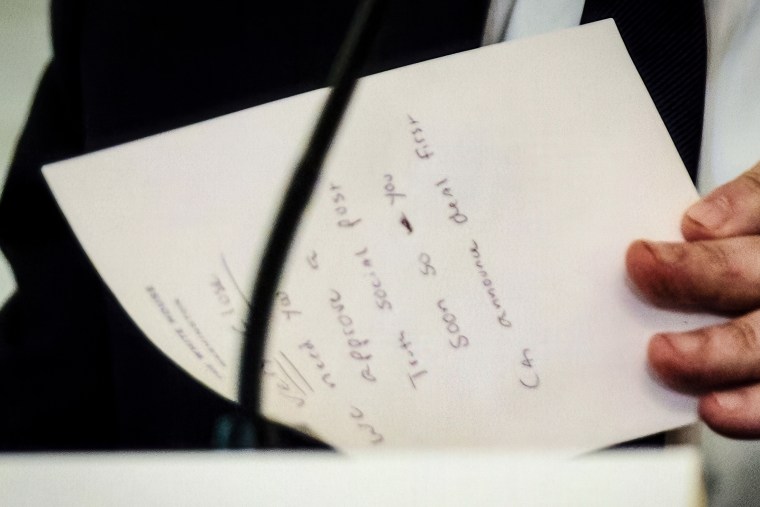 THE WHITE HOUSE
Very close
we need you
approve a
Truth social post
soon so you
can announce deal first